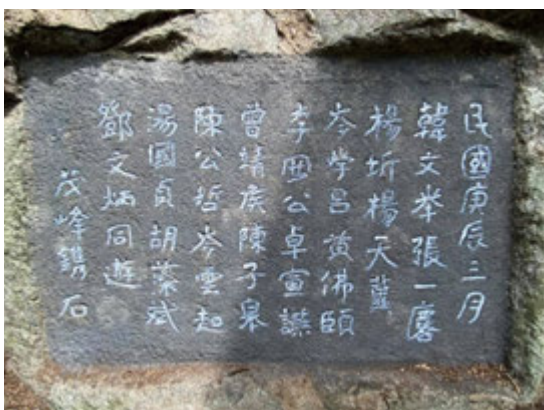 民國庚辰三月
韓文举張一麐
楊圻楊天驥
岑学呂黄佛頤
李鳳公卓宣讌
曾靖侯陳子泉
陳公哲岑雲起
湯國貞胡藻斌
鄧文炳同遊
茂峰鐫石